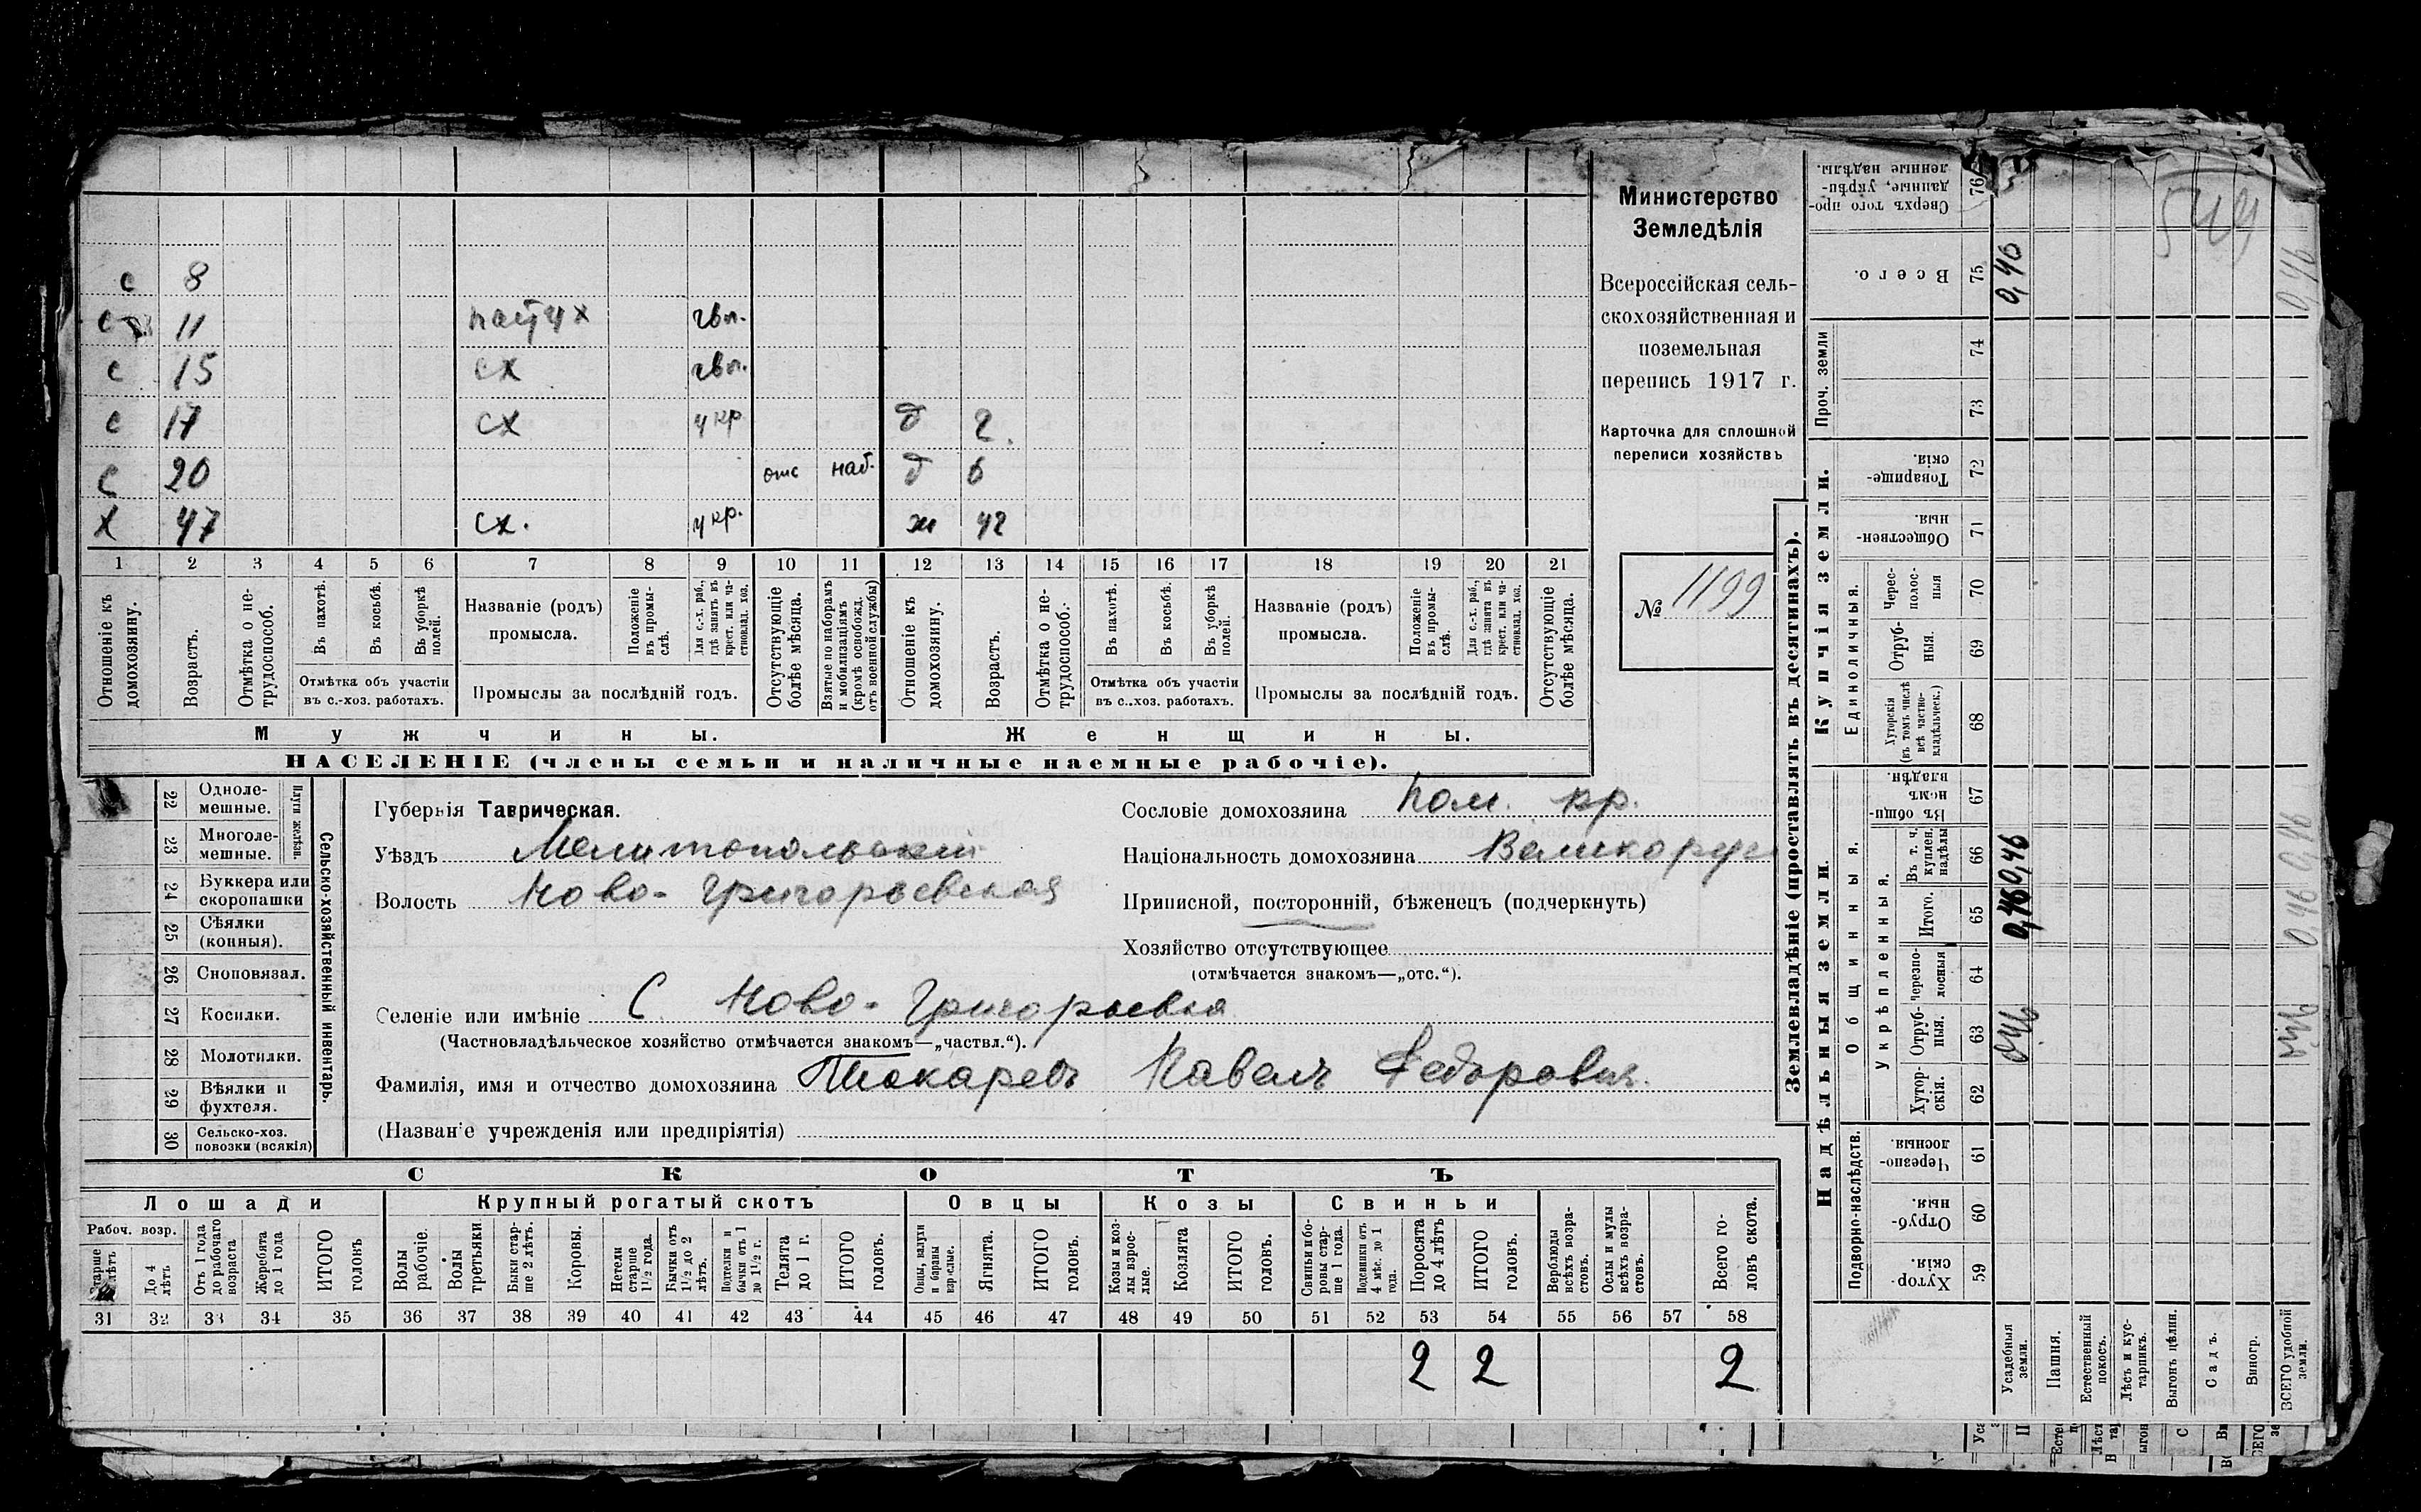 с 8
с 11 пастух чвл.
с 15 сх чвл.
с 17 сх укр. д 2.
с 20 отс наб. д 6
х 47 сх. укр. ж 42
1 2 3 4 5 6 7 8 9 10 11 12 13 14 15 16 17 18 19 20 21
Отношеніе къ домохозяину.
Возрастъ.
Отмѣтка о не-трудоспособ.
Въ пахотѣ.
Въ косьбѣ.
Въ уборкѣ полей.
Отмѣтка объ участіи въ с.-хоз. работахъ.
Названіе (родъ) промысла.
Положеніе въ промы-слѣ.
Для с.-х. раб., гдѣ занятъ въ крест. или ча-стновлад. хоз.
Промыслы за послѣдній годъ.
Отсутствующіе болѣе мѣсяца.
Взятые по наборамъ и мобилизаціямъ (кромѣ освобожд. отъ военной службы)
Отношеніе къ домохозяину.
Возрастъ.
Отмѣтка о не-трудоспособ.
Въ пахотѣ.
Въ косьбѣ.
Въ уборкѣ полей.
Отмѣтка объ участіи въ с.-хоз. работахъ.
Названіе (родъ) промысла.
Положеніе въ промы-слѣ.
Для с.-х. раб., гдѣ занята въ крест. или ча-стновлад. хоз.
Промыслы за послѣдній годъ.
Отсутствующіе болѣе мѣсяца.
Мужчины. Женщины.
НАСЕЛЕНІЕ (члены семьи и наличные наемные рабочіе).
Министерство
Земледѣлія
Всероссійская сель-
скохозяйственная и
поземельная
перепись 1917 г.
Карточка для сплошной
переписи хозяйствъ
№ 1199
22 Одноле-мешные.
23 Многоле-мешные.
Плуги желѣзн.
24 Буккера или скоропашки
25 Сѣялки (конныя).
26 Сноповязал.
27 Косилки.
28 Молотилки.
29 Вѣялки и фухтеля.
30 Сельско-хоз. повозки (всякія)
Сельско-хозяйственный инвентарь.
Губернія Таврическая.
Уѣздъ Мелитопольский
Волость Ново-Григорьевская
Сословіе домохозяина пом. кр.
Національность домохозяина Великорус
Приписной, посторонній, бѣженецъ (подчеркнуть)
Хозяйство отсутствующее
(отмѣчается знакомъ—„отс.“).
Селеніе или имѣніе С. Ново-Григорьевка
(Частновладѣльческое хозяйство отмѣчается знакомъ—„частвл.“).
Фамилія, имя и отчество домохозяина Токаревъ Павелъ Федорович.
(Названіе учрежденія или предпріятія)
СКОТЪ
Лошади Крупный рогатый скотъ Овцы Козы Свиньи
Рабоч. возр.
Старше 4 лѣтъ
До 4 лѣтъ
Отъ 1 года до рабочаго возраста
Жеребята до 1 года
ИТОГО головъ
Волы рабочіе.
Волы третьяки
Быки стар-ше 2 лѣтъ.
Коровы.
Нетели старше 1½ года.
Бычки отъ 1½ до 2 лѣтъ.
Подтелки и бычки отъ 1 до 1½ г.
Телята до 1 г.
ИТОГО головъ.
Овцы, валухи и бараны взрослые.
Ягнята.
ИТОГО головъ.
Козы и коз-лы взрос-лые.
Козлята
ИТОГО головъ.
Свиньи и бо-ровы стар-ше 1 года.
Подсвинки отъ 4 мѣс. до 1 года.
Поросята до 4 лѣтъ
ИТОГО головъ.
Верблюды всѣхъ возра-стовъ.
Ослы и мулы всѣхъ возра-стовъ.
Всего го-ловъ скота.
31 32 33 34 35 36 37 38 39 40 41 42 43 44 45 46 47 48 49 50 51 52 53 54 55 56 57 58
2 2 2
Землевладѣніе (проставлять въ десятинахъ).
Надѣльныя земли. Купчія земли. Проч. земли
Подворно-наслѣдств.
Общинныя.
Укрѣпленныя.
Единоличныя.
Хутор-скія. 59
Отруб-ныя. 60
Черезпо-лосныя 61
Хутор-скія. 62
Отруб-ныя. 63
Черезпо-лосныя 64
Итого. 65
Въ т. ч. куплен. надѣлы 66
Въ общин-номъ владѣн. 67
Хуторскія (въ томъ числѣ всѣ частно-владѣльческ.) 68
Отруб-ныя. 69
Черес-полос-ныя 70
Обществен-ныя. 71
Товарище-скія. 72
73
74
Всего. 75
Сверхъ того про-данные, укрѣп-ленные надѣлы. 76
0,46 0,46 0,46 0,46
549
0,46 0,46 0,46
Усадебныя земли.
Пашня.
Естественный покосъ.
Лѣсъ и кус-тарникъ.
Выгонъ цѣлин.
Садъ.
Виногр.
ВСЕГО удобной земли.